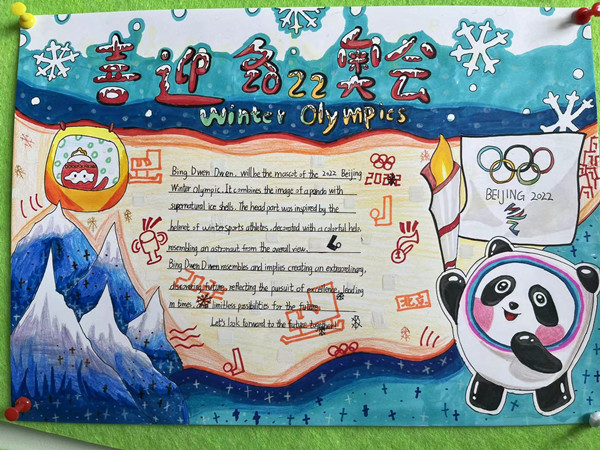 喜迎冬22奥会
Winter Olympics
Bing Dwen Dwen. will be the mascot of the 2022 Beijing
Winter olympic. It combines the image of a panda with
supernatural ice shells. The head part was inspired by the
helmet of winter sports athletes, decorated with a colorful halo,
resembling an astronaut from the overall view.
Bing Dwen Dwen resembles and implies creating an extraordinary,
future, reflecting the pursuit of excellence, leading
in times, and limitless possibilities for the future.
Let's look forward to the future together!
2022
北京
BEIJING 2022